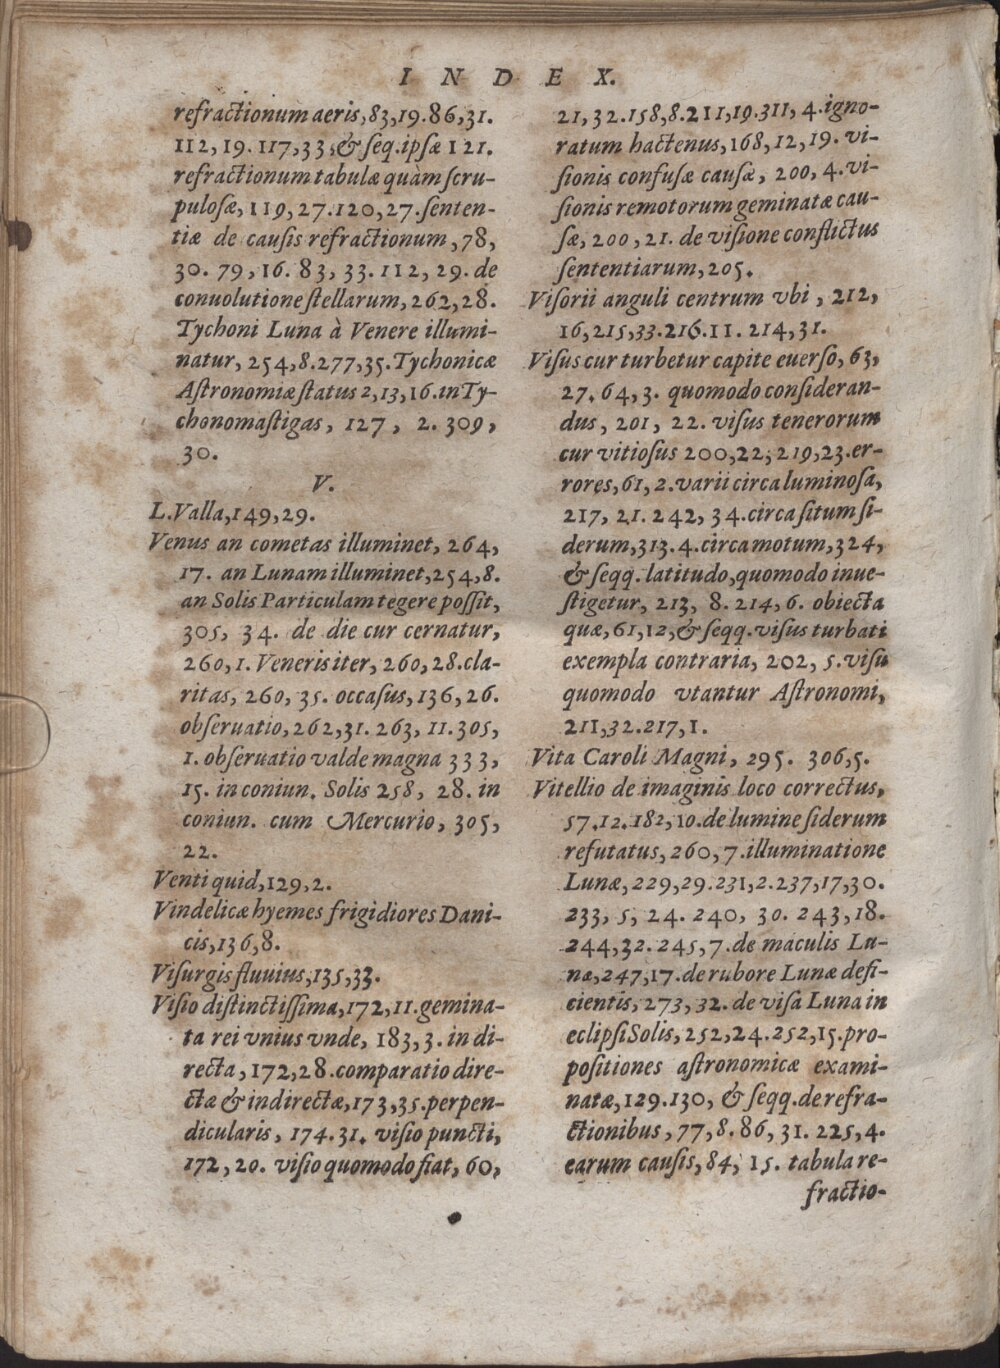 INDEX.
refractionum aeris,83,19.86,31.
112,19.117,33,&ſeq.ipſæ 121.
refractionum tabulæ quàm ſcru-
puloſæ,119,27.120,27.ſenten-
tiæ de cauſis refractionum,78,
30. 79,16. 83, 33. 112, 29. de
conuolutione ſtellarum,262,28.
Tychoni Luna à Venere illumi-
natur, 254,8.277,35.Tychonicæ
Aſtronomiæ ſtatus 2,13,16.in Ty-
chonomaſtigas, 127, 2. 309,
30.
V.
L.Valla,149,29.
Venus an cometas illuminet, 264,
17. an Lunam illuminet,254,8.
an Solis Particulam tegere poſſit,
305, 34. de die cur cernatur,
260,1. Veneris iter, 260,28.cla-
ritas, 260, 35. occaſus,136,26.
obſeruatio,262,31. 263, 11.305,
1. obſeruatio valde magna 333,
15. in coniun. Solis 258, 28. in
coniun. cum Mercurio, 305,
22.
Venti quid,129,2.
Vindelicæ hyemes frigidiores Dani-
cis,136,8.
Viſurgis fluuius,135,33.
Viſio diſtinctiſſima,172,11.gemina-
ta rei vnius vnde, 183,3. in di-
recta,172,28.comparatio dire-
ctæ & indirectæ,173,35.perpen-
dicularis, 174.31. viſio puncti,
172,20. viſio quomodo fiat, 60,
21,32.158,8.211,19.311,4.igno-
ratum hactenus,168,12,19. vi-
ſionis confuſæ cauſæ, 200, 4. vi-
ſionis remotorum geminatæ cau-
ſæ, 200, 21. de viſione conflictus
ſententiarum,205.
Viſorii anguli centrum vbi, 212,
16,215,33.216.11. 214,31.
Viſus cur turbetur capite euerſo,63,
27.64,3. quomodo conſideran-
dus, 201, 22. viſus tenerorum
cur vitioſus 200,22,219,23.er-
rores,61,2.varii circa luminoſa,
217, 21. 242, 34.circa ſitum ſi-
derum,313.4.circa motum,324,
& ſeqq. latitudo,quomodo inue-
ſtigetur, 213, 8.214,6. obiecta
quæ,61,12,& ſeqq.viſus turbati
exempla contraria, 202, 5.viſu
quomodo vtantur Aſtronomi,
211,32.217,1.
Vita Caroli Magni, 295. 306,5.
Vitellio de imaginis loco correctus,
57.12.182,10.de lumine ſiderum
refutatus,260,7.illuminatione
Lunæ,229,29.231,2.237,17,30.
233, 5, 24. 240, 30. 243,18.
244,32. 245,7. de maculis Lu-
næ,247,17.de rubore Lunæ defi-
cientis, 273, 32. de viſa Luna in
eclipſi Solis,252,24.252,15.pro-
poſitiones aſtronomicæ exami-
natæ,129.130, & ſeqq.de refra-
ctionibus,77,8.86,31. 225,4.
earum cauſis,84, 15. tabula re-
fractio-